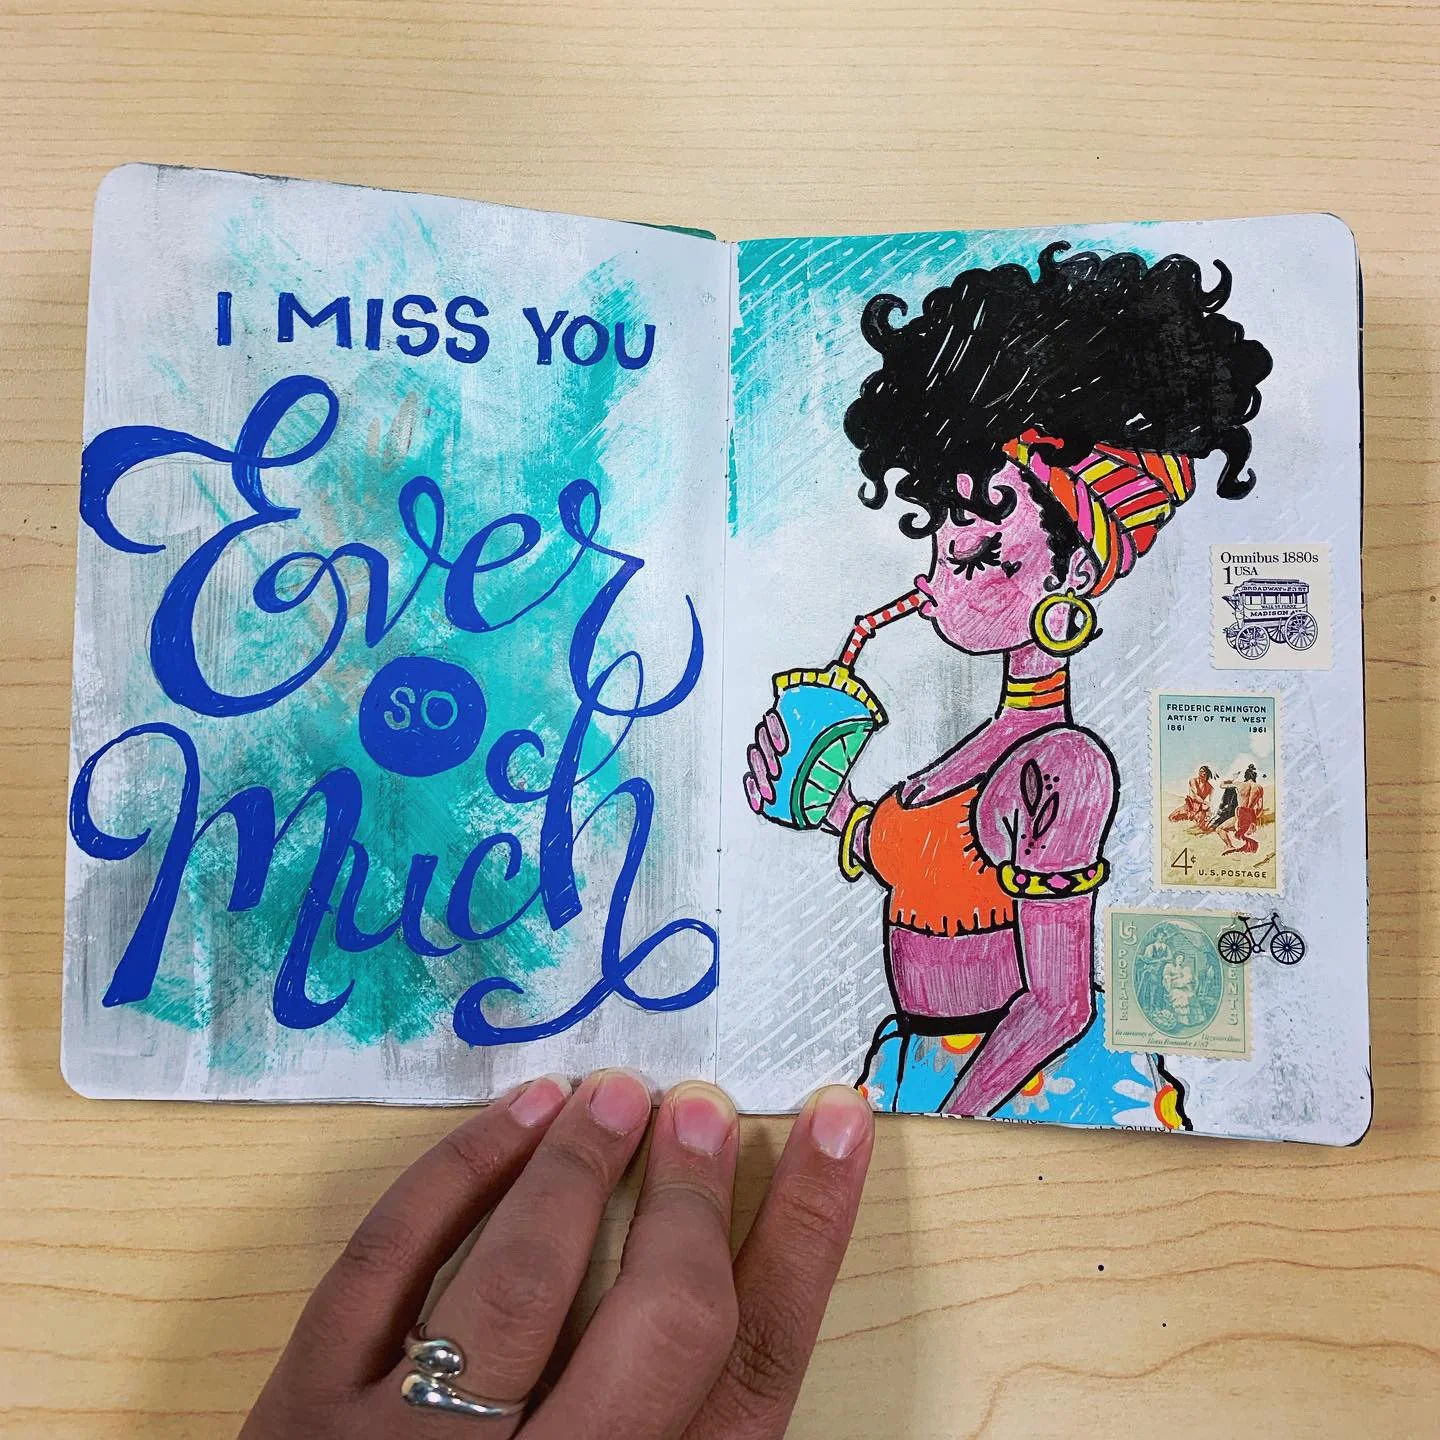 I MISS YOU
Ever
SO
Much
Omnibus 1880s
1 USA
BROADWAY & 23 ST
WALL ST. FERRY
MADISON AV
FREDERIC REMINGTON
ARTIST OF THE WEST
1861 1961
4¢ U.S. POSTAGE
US POSTAGE
CENTS
In memory of